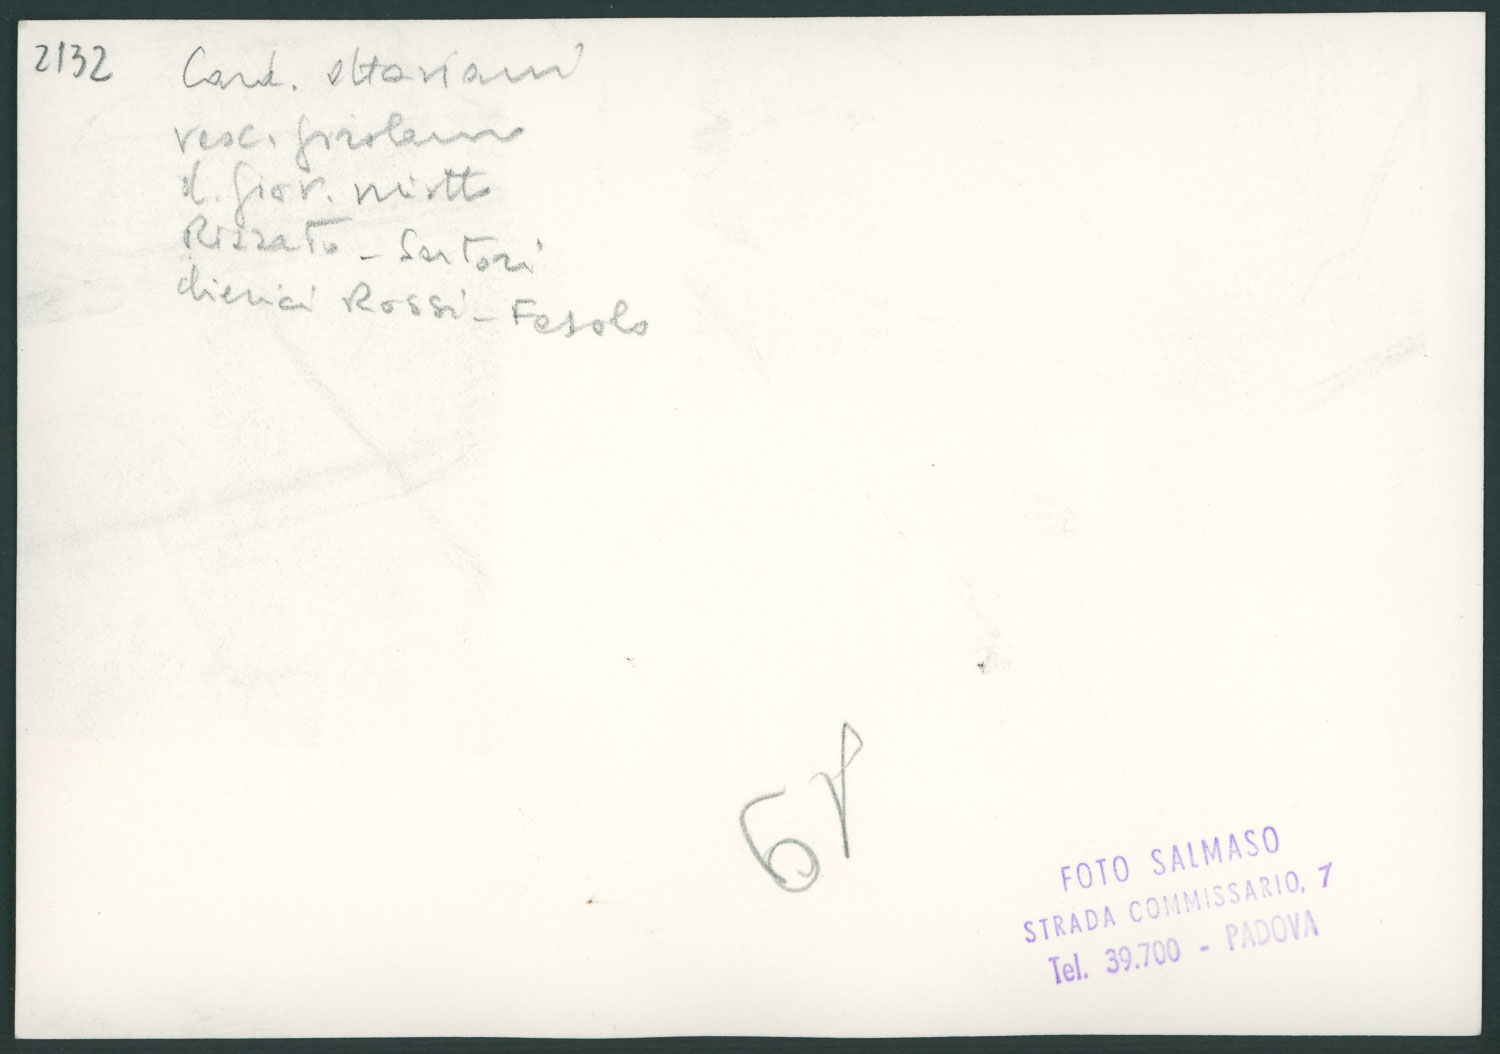 2132
Card. Ottaviani
vesc. Girolamo
d. Giov. Miotto
Rizzato - Sartori
chierici Rossi - Fasolo
FOTO SALMASO
STRADA COMMISSARIO, 7
Tel. 39.700 - PADOVA